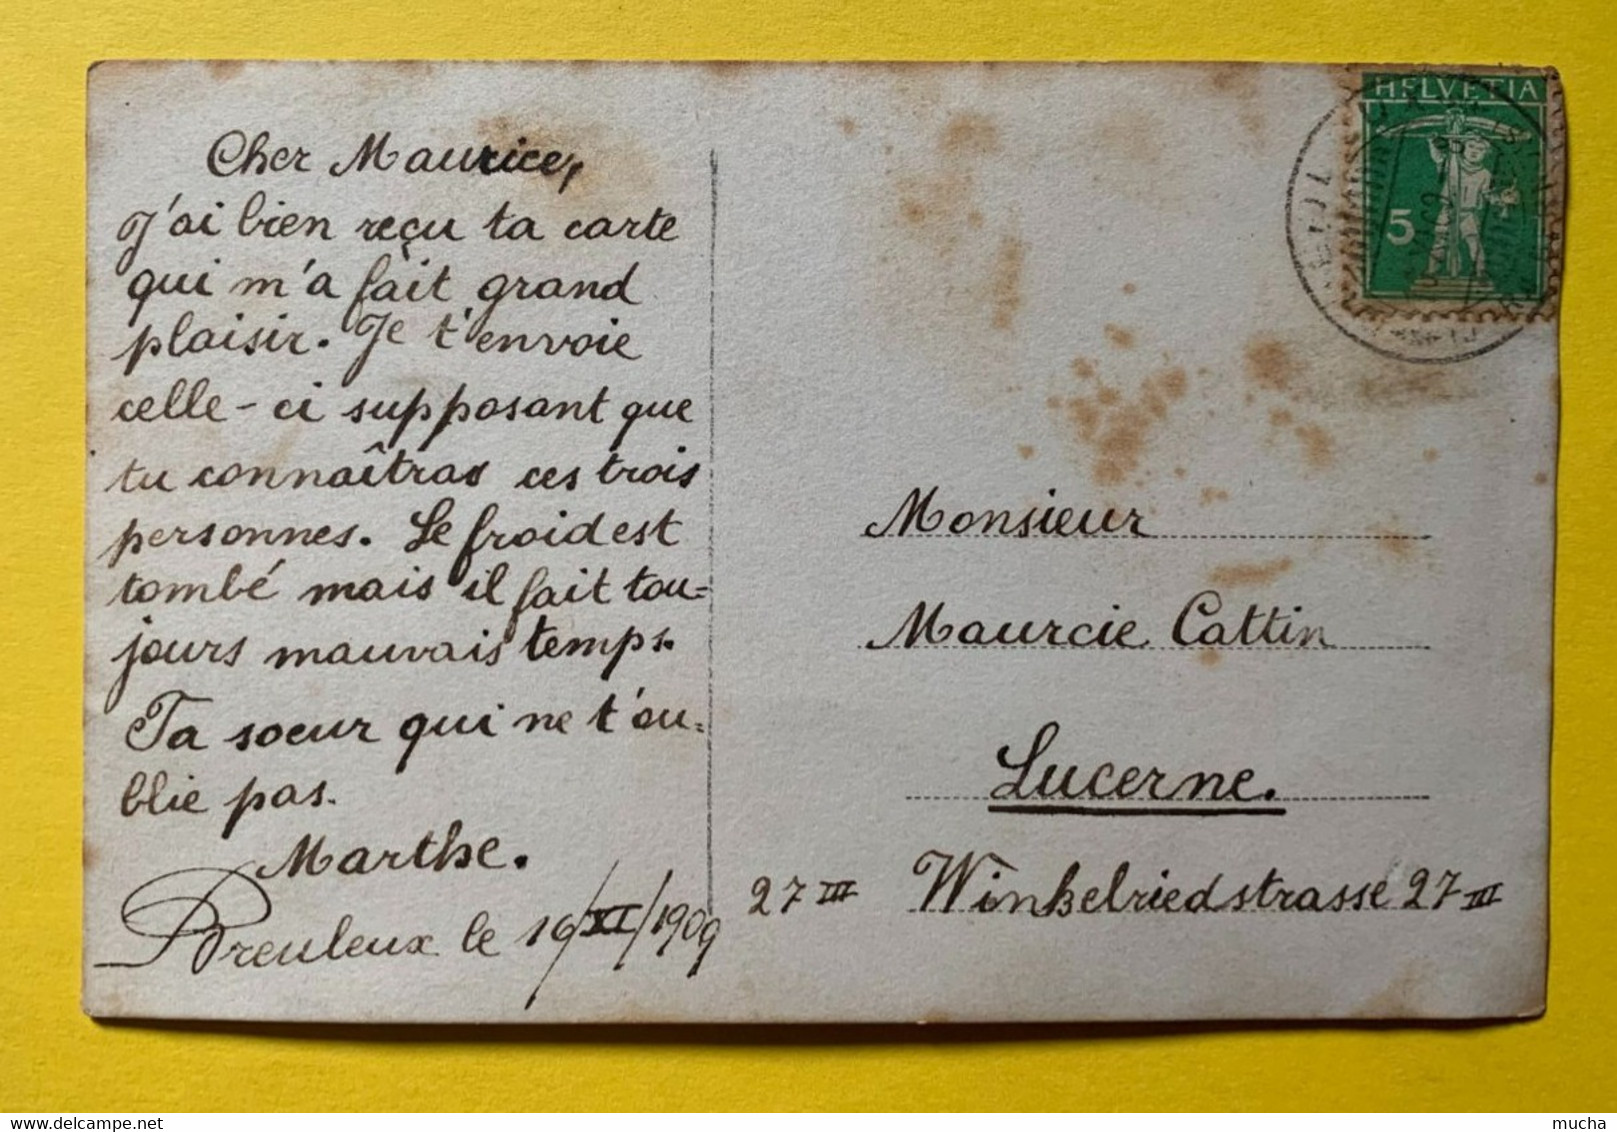 Cher Maurice,
J'ai bien reçu ta carte
qui m'a fait grand
plaisir. Je t'envoie
celle-ci supposant que
tu connaîtras ces trois
personnes. Le froid est
tombé mais il fait tou=
jours mauvais temps.
Ta soeur qui ne t'ou=
blie pas.
Marthe.
Breuleux le 16/XI/1909
HELVETIA
5
Monsieur
Maurcie Cattin
Lucerne.
27 III Winkelriedstrasse 27 III
mucha